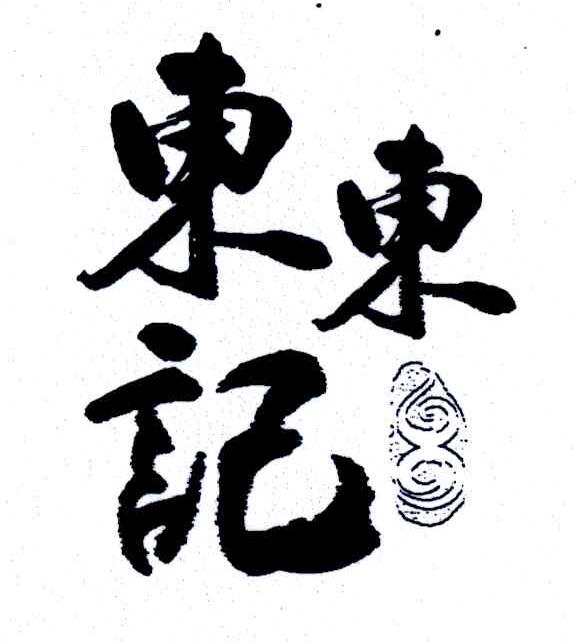 東
東記